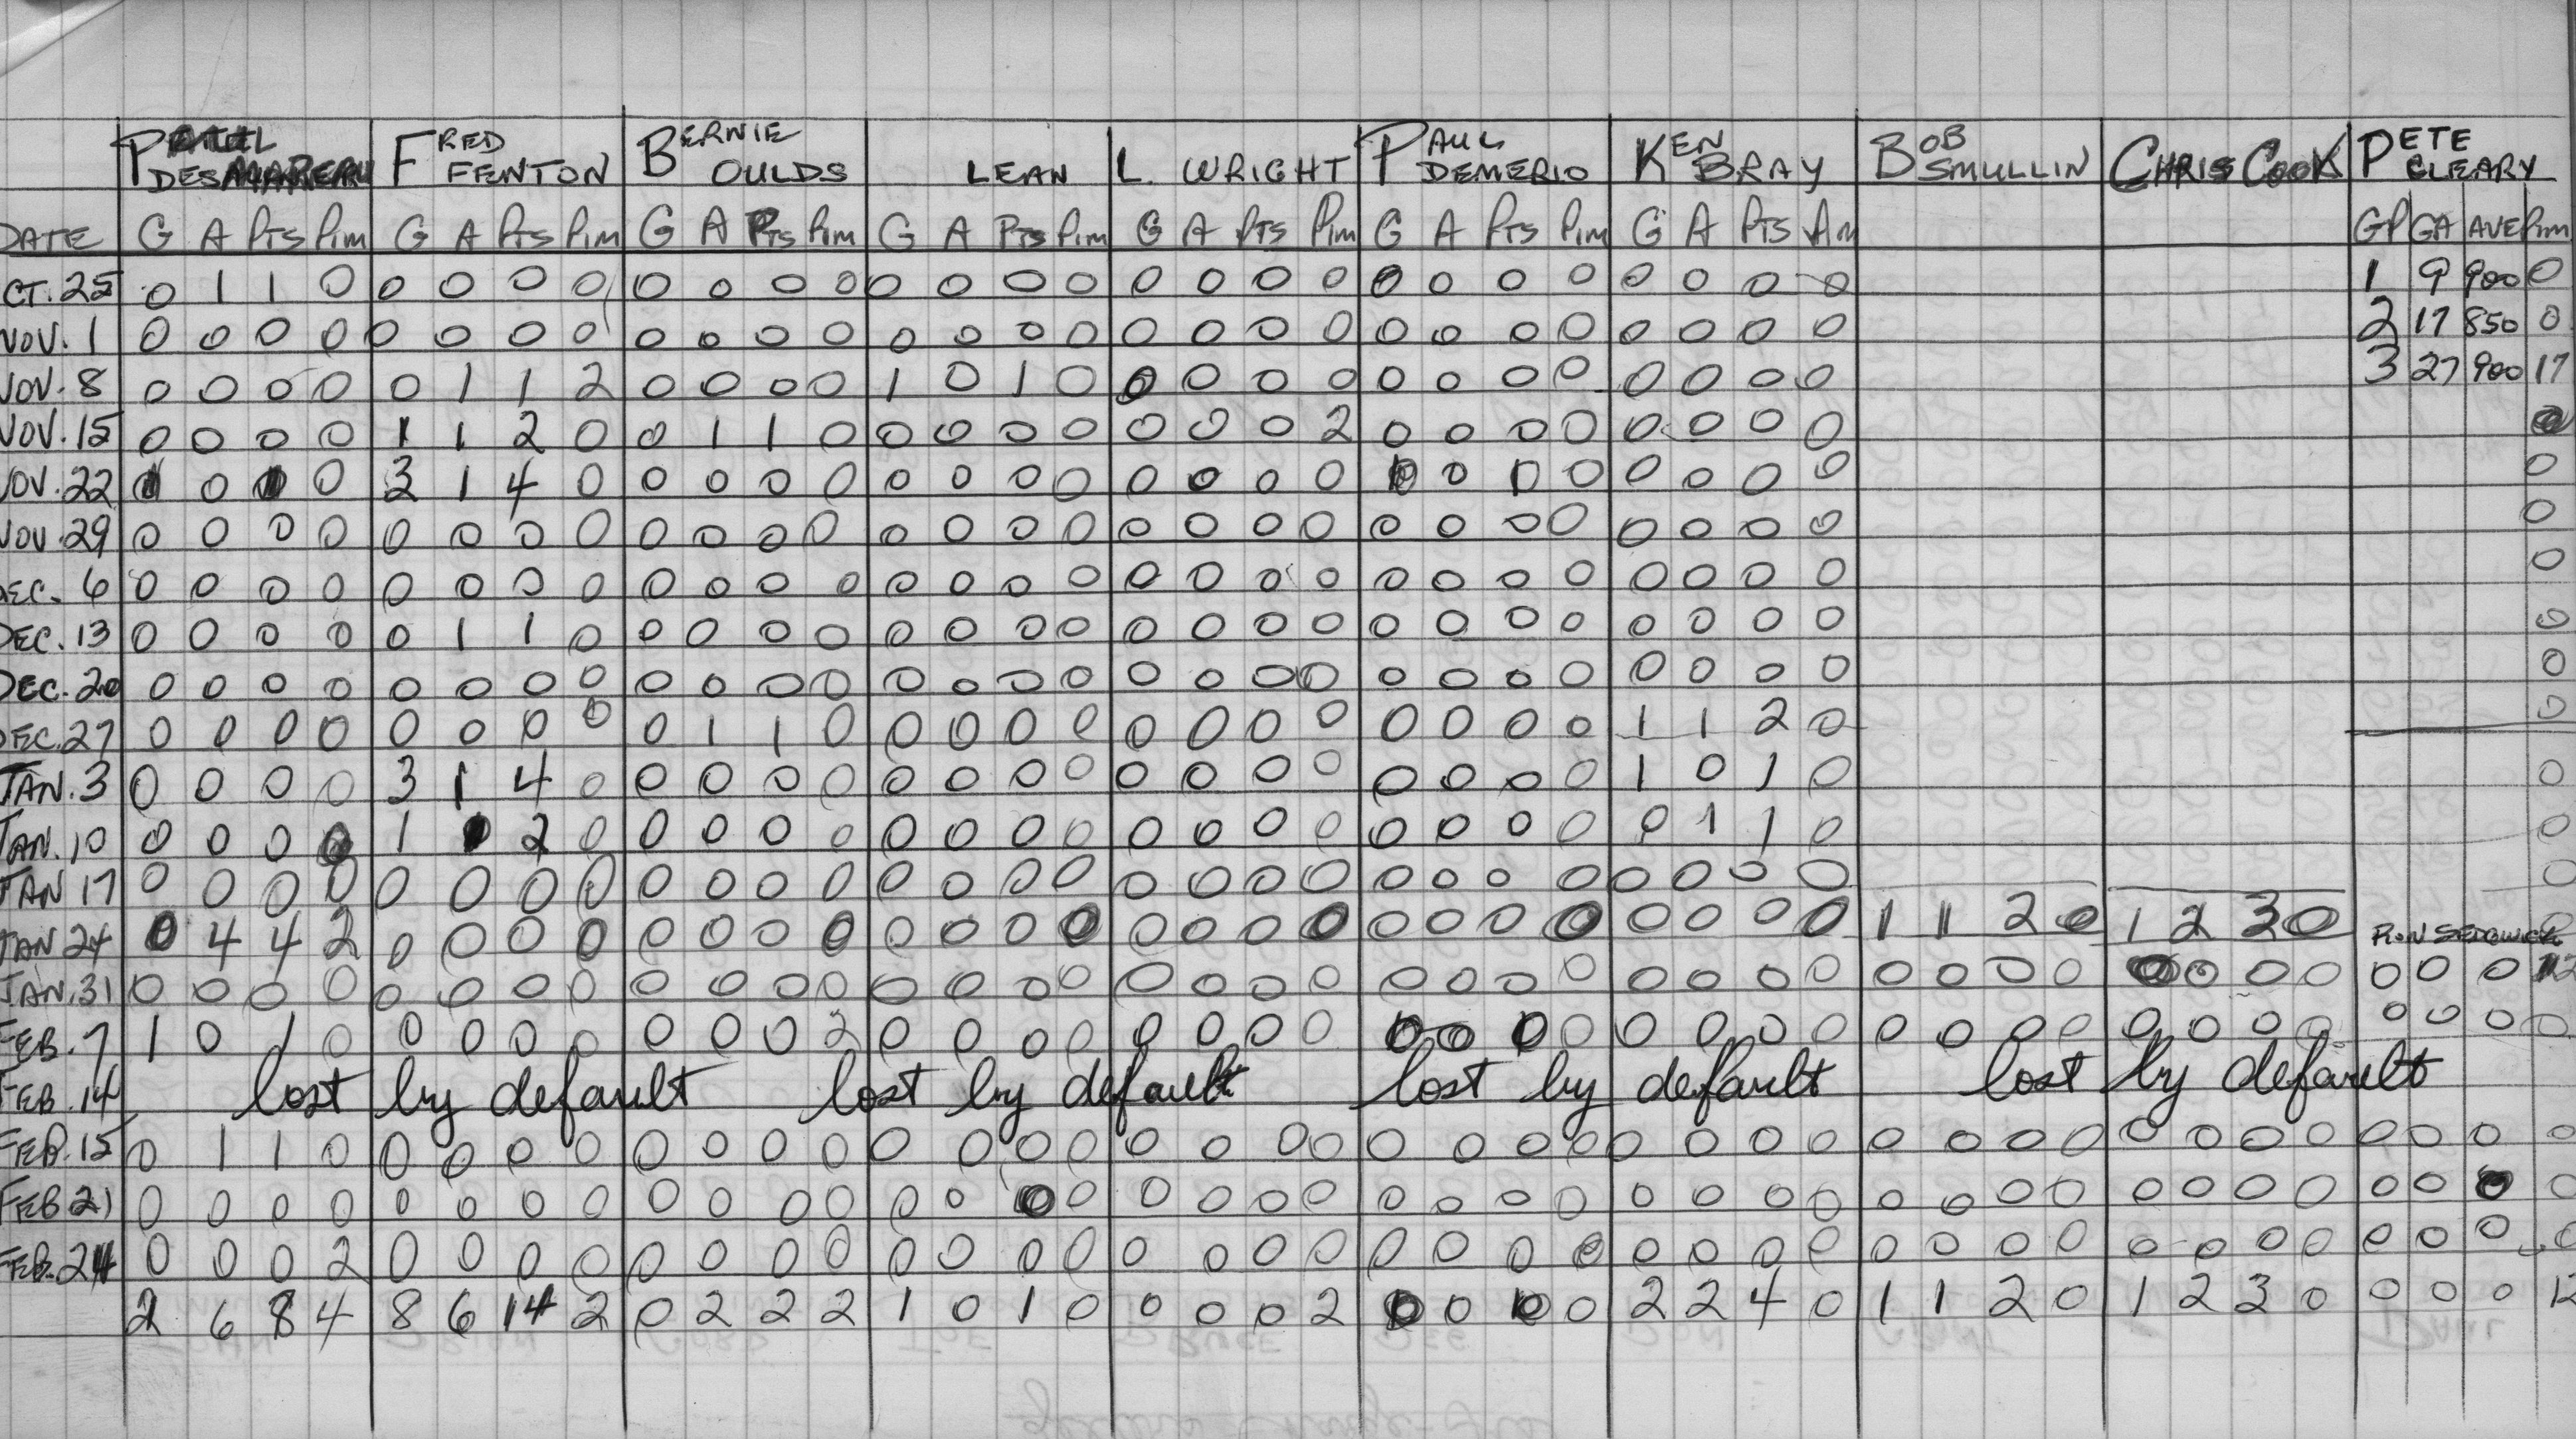 PAUL DESMAREAU FRED FENTON BERNIE OULDS LEAN L. WRIGHT PAUL DEMERIO KEN BRAY BOB SMULLIN CHRIS COOK PETE CLEARY
DATE G A Pts Pim G A Pts Pim G A Pts Pim G A Pts Pim G A Pts Pim G A Pts Pim G A Pts Pim GP GA AVE Pim
CT. 25 0 1 1 0 0 0 0 0 0 0 0 0 0 0 0 0 0 0 0 0 0 0 0 0 0 0 0 0 1 9 900 0
NOV. 1 0 0 0 0 0 0 0 0 0 0 0 0 0 0 0 0 0 0 0 0 0 0 0 0 0 0 0 0 2 17 850 0
NOV. 8 0 0 0 0 0 1 1 2 0 0 0 0 1 0 1 0 0 0 0 0 0 0 0 0 0 0 0 0 3 27 900 17
NOV. 15 0 0 0 0 1 1 2 0 0 1 1 0 0 0 0 0 0 0 0 2 0 0 0 0 0 0 0 0
NOV. 22 0 0 3 1 4 0 0 0 0 0 0 0 0 0 0 0 0 0 0 1 0 0 0 0 0 0
NOV. 29 0 0 0 0 0 0 0 0 0 0 0 0 0 0 0 0 0 0 0 0 0 0 0 0 0 0 0 0 0
DEC. 6 0 0 0 0 0 0 0 0 0 0 0 0 0 0 0 0 0 0 0 0 0 0 0 0 0 0 0 0 0
DEC. 13 0 0 0 0 0 1 1 0 0 0 0 0 0 0 0 0 0 0 0 0 0 0 0 0 0 0 0 0 0
DEC. 20 0 0 0 0 0 0 0 0 0 0 0 0 0 0 0 0 0 0 0 0 0 0 0 0 0 0 0 0 0
DEC. 27 0 0 0 0 0 0 0 0 0 1 1 0 0 0 0 0 0 0 0 0 0 0 0 0 1 1 2 0 0
JAN. 3 0 0 0 0 3 1 4 0 0 0 0 0 0 0 0 0 0 0 0 0 0 0 0 0 1 0 1 0 0
JAN. 10 0 0 0 0 1 2 0 0 0 0 0 0 0 0 0 0 0 0 0 0 0 0 0 0 1 1 0 0
JAN 17 0 0 0 0 0 0 0 0 0 0 0 0 0 0 0 0 0 0 0 0 0 0 0 0 0 0 0 0 0
JAN 24 0 4 4 2 0 0 0 0 0 0 0 0 0 0 0 0 0 0 0 0 0 0 0 0 0 0 0 0 1 1 2 0 1 2 3 0 RON SEDGWICK 0
JAN. 31 0 0 0 0 0 0 0 0 0 0 0 0 0 0 0 0 0 0 0 0 0 0 0 0 0 0 0 0 0 0 0 0 0 0 0 0 0 0 0 12
FEB. 7 1 0 1 0 0 0 0 0 0 0 0 2 0 0 0 0 0 0 0 0 0 0 0 0 0 0 0 0 0 0 0 0 0 0 0 0 0 0 0 0
FEB. 14 lost by default lost by default lost by default lost by default
FEB. 15 0 1 1 0 0 0 0 0 0 0 0 0 0 0 0 0 0 0 0 0 0 0 0 0 0 0 0 0 0 0 0 0 0 0 0 0 0 0 0 0
FEB 21 0 0 0 0 0 0 0 0 0 0 0 0 0 0 0 0 0 0 0 0 0 0 0 0 0 0 0 0 0 0 0 0 0 0 0 0 0 0 0 0
FEB. 24 0 0 0 2 0 0 0 0 0 0 0 0 0 0 0 0 0 0 0 0 0 0 0 0 0 0 0 0 0 0 0 0 0 0 0 0 0 0 0 0
2 6 8 4 8 6 14 2 0 2 2 2 1 0 1 0 0 0 0 2 0 0 2 2 4 0 1 1 2 0 1 2 3 0 0 0 0 12